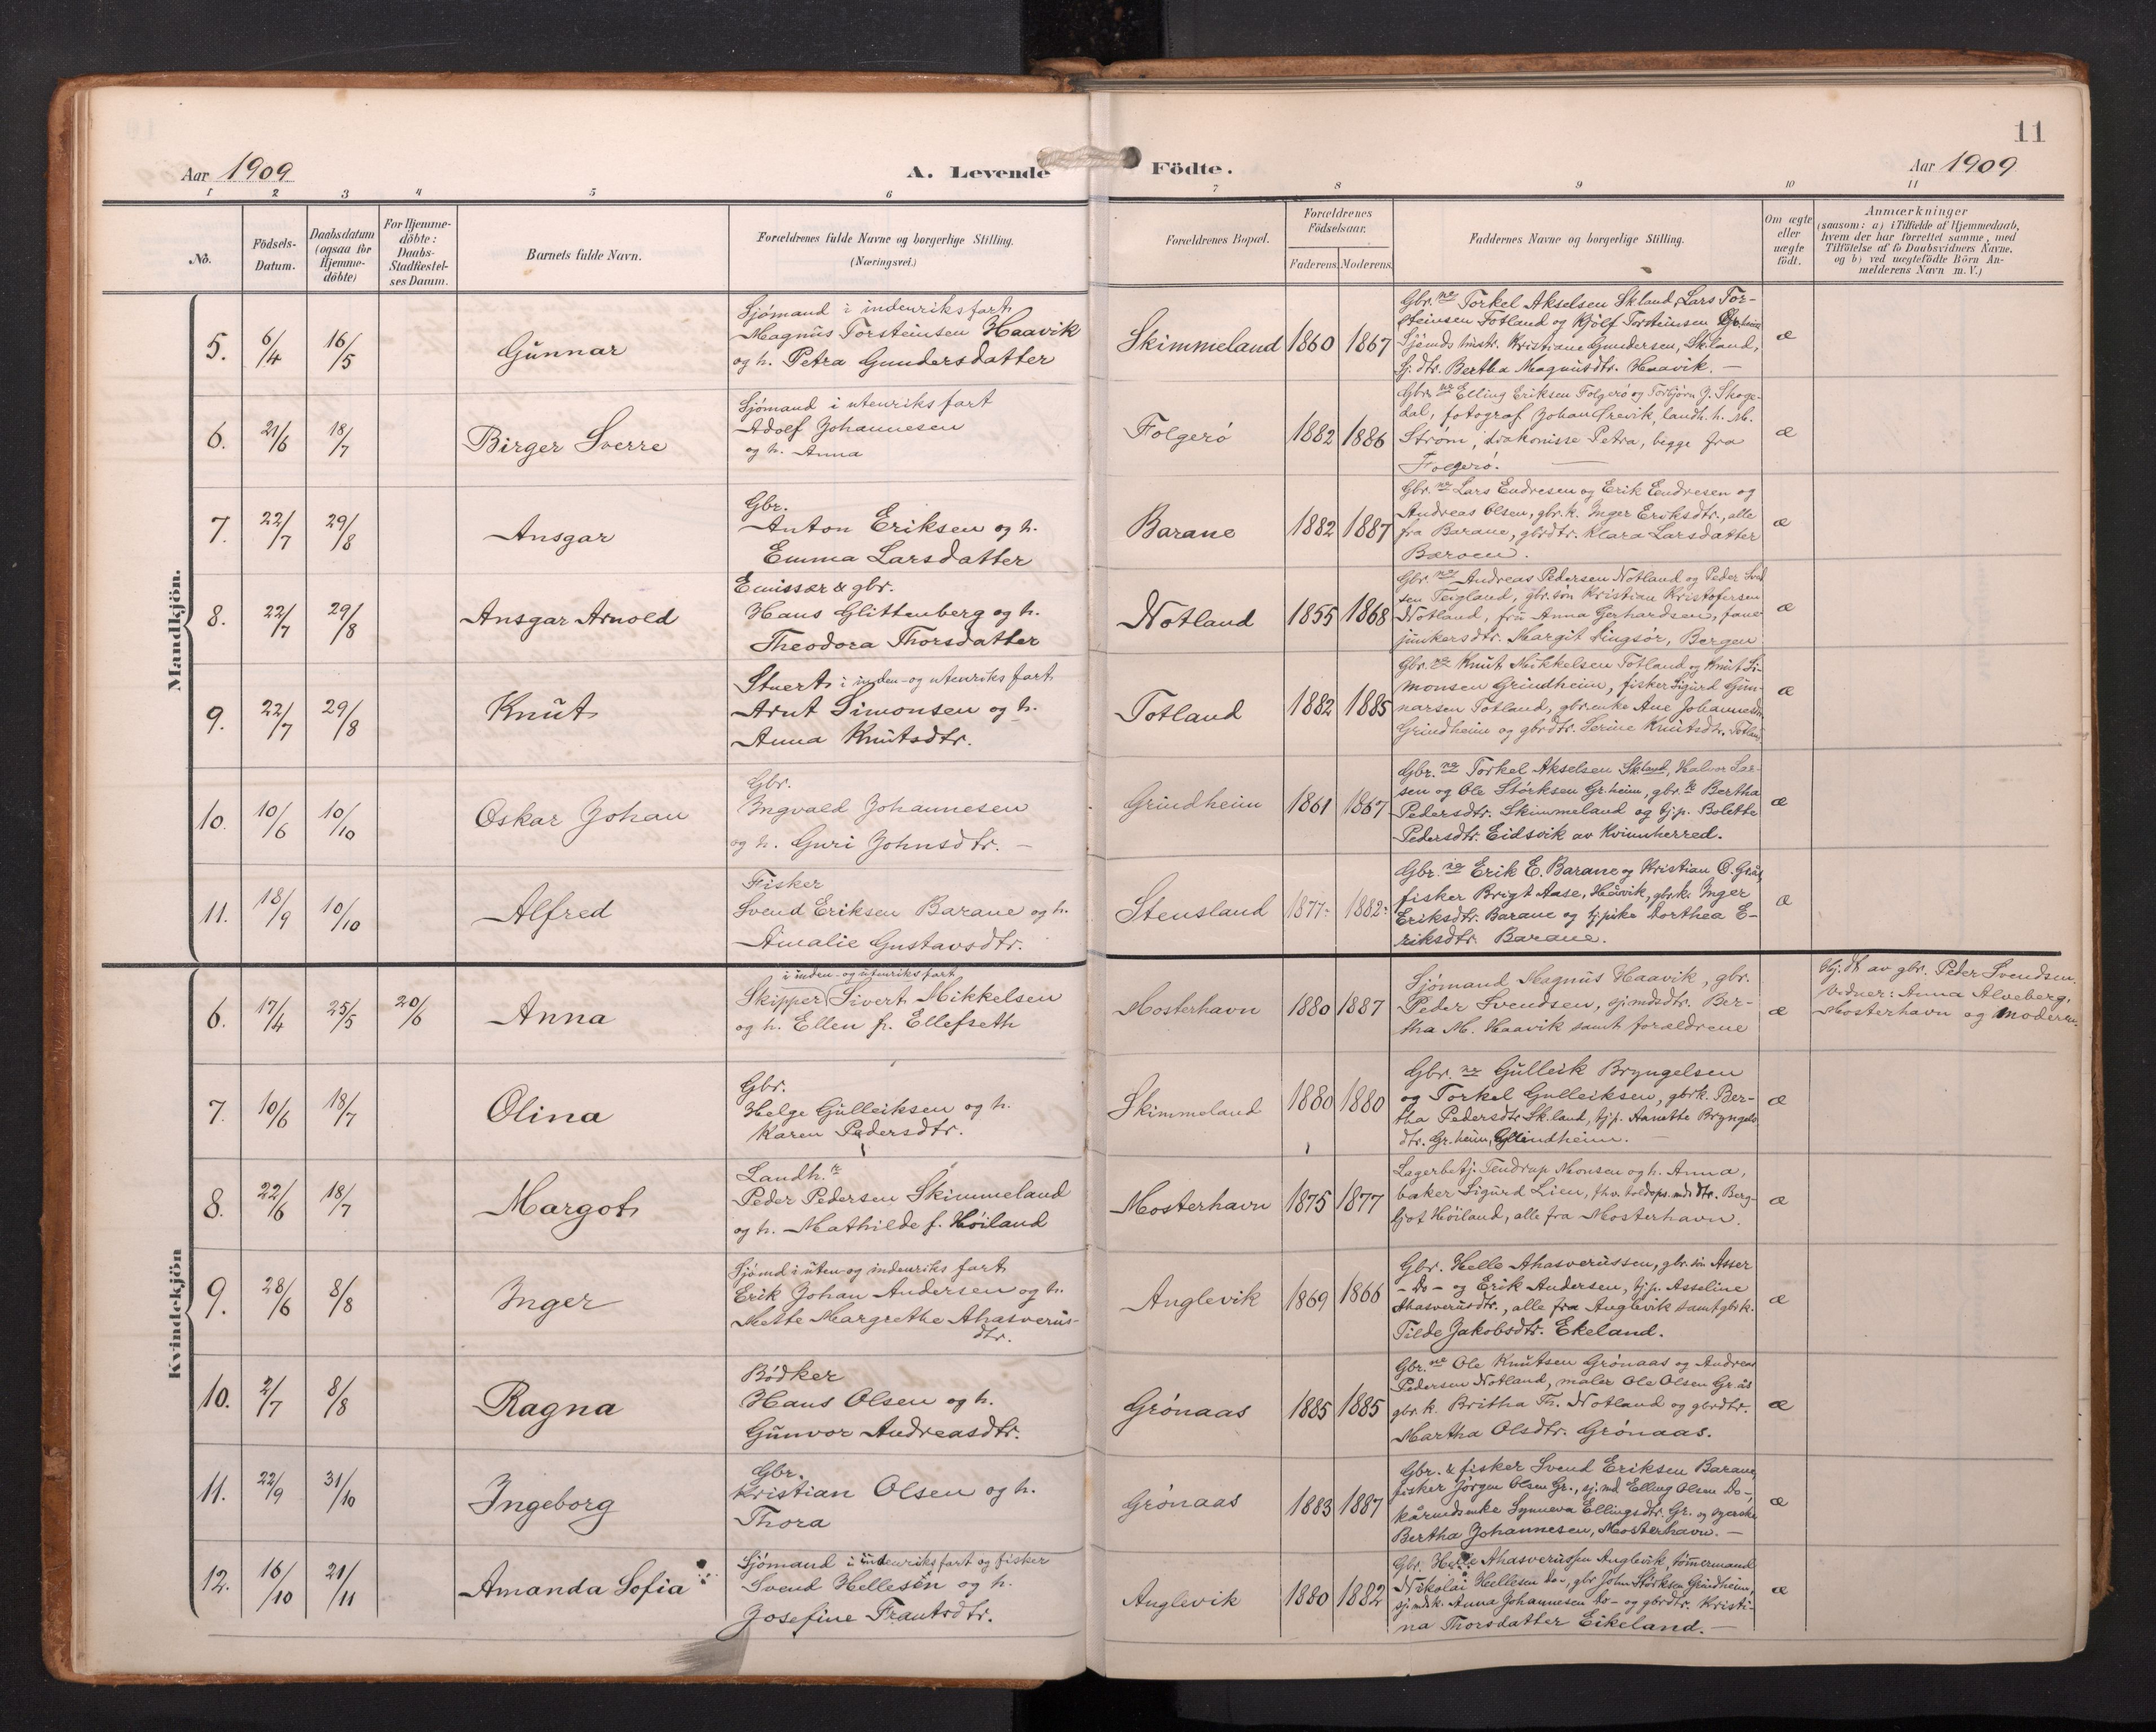 11
Aar 1909
A. Levende Födte.
Aar 1909
1 2 3 4 5 6 7 8 9 10 11
No.
Födsels-Datum.
Daabsdatum (ogsaa for Hjemme-döbte)
For Hjemme-döbte: Daabs-Stadfæstel-ses Datum.
Barnets fulde Navn.
Forældrenes fulde Navne og borgerlige Stilling.
(Næringsvei.)
Forældrenes Bopæl.
Forældrenes Födselsaar.
Faderens. Moderens.
Faddernes Navne og borgerlige Stilling.
Om ægte eller uægte födt.
Anmærkninger
(saasom: a) i Tilfælde af Hjemmedaab,
hvem der har forrettet samme, med
Tilföielse af to Daabsvidners Navne,
og b) ved uægtefödte Börn An-
melderens Navn m. V.)
Mandkjön.
5. 6/4 16/5 Gunnar
Sjömand i indenriksfart
Magnus Torsteinsen Haavik
og h. Petra Gundersdatter
Skimmeland 1860 1867
Gbr.ne Torkel Akselsen Skland, Lars Tor-
steinsen Totland og Kjölf Torsteinsen Grheim
Sjömds hustr. Kristiane Gundersen, Skland,
Sj. dtr. Bertha Magnusdtr. Haavik. —
æ
6. 21/6 18/7 Birger Sverre
Sjömand i utenriksfart
Adolf Johannesen
og h. Anna
Folgerö 1882 1886
Gbr.ne Elling Eriksen Folgerö og Torbjörn J. Skoge-
dal, fotograf Johan Örevik, landh. h. M.
Ström, diakonisse Petra, begge fra
Folgerö. —
æ
7. 22/7 29/8 Ansgar
Gbr.
Anton Eriksen og h.
Emma Larsdatter
Barane 1882 1887
Gbr.ne Lars Endresen og Erik Endresen og
Andreas Olsen, gbr.k. Inger Eriksdtr., alle
fra Barane, gbrdtr. Klara Larsdatter
Baroen.
æ
8. 22/7 29/8 Ansgar Arnold
Emissær & gbr.
Hans Glittenberg og h.
Theodora Thorsdatter
Notland 1855 1868
Gbr.ne Andreas Pedersen Notland og Peder Svend
sen Teigland, gbr.sön Kristian Kristofersen
Notland, fru Anna Gerhardsen, fane
junkersdtr. Margit Ringsör, Bergen
æ
9. 22/7 29/8 Knut
Stuert i inden- og utenriksfart
Arnt Simonsen og h.
Anna Knutsdtr.
Totland 1882 1885
Gbr.ne Knut Mikkelsen Totland og Knut Si-
monsen Grindheim, fisker Sigurd Gun-
narsen Totland, gbr.enke Ane Johannesdtr.
Grindheim og gbrdtr. Serine Knutsdtr. Totland
æ
10. 10/6 10/10 Oskar Johan
Gbr.
Ingvald Johannesen
og h. Guri Johnsdtr. —
Grindheim 1861 1867
Gbr.ne Torkel Akselsen Skland, Halvor Lar-
sen og Ole Störksen Gr.heim, gbr.k Bertha
Pedersdtr. Skimmeland og tj.p. Bolette
Pedersdtr. Eidsvik av Kvinnherred.
æ
11. 18/9 10/10 Alfred
Fisker
Svend Eriksen Barane og h.
Amalie Gustavsdtr.
Stensland 1877 1882
Gbr.ne Erik E. Barane og Kristian O. Grås
fisker Brigt Aase, Håvik, gbr.k. Inger
Eriksdtr. Barane og tj.pike Dorthea E-
riksdtr. Barane.
æ
Kvindekjön
6. 17/4 25/5 20/6 Anna
i inden- og utenriksfart
Skipper Sivert Mikkelsen
og h. Ellen f. Ellefseth
Mosterhavn 1880 1887
Sjömand Magnus Haavik, gbr.
Peder Svendsen, sjmdsdtr. Ber-
tha M. Haavik samt forældrene
æ
Hj.dt av gbr. Peder Svendsen.
Vidner: Anna Alveberg,
Mosterhavn og moderen.
7. 10/6 18/7 Olina
Gbr.
Helge Gulleiksen og h.
Karen Pedersdtr.
Skimmeland 1880 1880
Gbr.ne Gulleik Bryngelsen
og Torkel Gulleiksen, gbrk. Ber-
tha Pedersdtr Sk.land, tj.p. Anette Bryngels
dtr. Gr.heim, Grindheim. —
æ
8. 22/6 18/7 Margot
Landh.
Peder Pedersen Skimmeland
og h. Mathilde f. Höiland
Mosterhavn 1875 1877
Lagerbetj. Tendrup Monsen og h. Anna,
baker Sigurd Lien, fhv. toldops.mds dtr. Berg-
ljot Höiland, alle fra Mosterhavn.
æ
9. 28/6 8/8 Inger
Sjömd i uten- og indenriks fart
Erik Johan Andersen og h.
Mette Margrethe Ahasverus-
dtr.
Anglevik 1869 1866
Gbr. Helle Ahasverussen, gbr.sön Asser
- Do - og Erik Andersen, tj.p. Asseline
Ahasverusdtr., alle fra Anglevik samt gbrk.
Tilde Jakobsdtr. Ekeland.
æ
10. 2/7 8/8 Ragna
Bödker
Hans Olsen og h.
Gunvor Andreasdtr.
Grönaas 1885 1885
Gbr.ne Ole Knutsen Grönaas og Andreas
Pedersen Notland, maler Ole Olsen Gr.ås
gbr.k. Britha Th. Notland og gbrdtr.
Martha Olsdtr. Grönaas.
æ
11. 22/9 31/10 Ingeborg
Gbr.
Kristian Olsen og h.
Thora
Grönaas 1883 1887
Gbr. & fisker Svend Eriksen Barane,
fisker Jörgen Olsen Gr., sj.md Elling Olsen Do-,
kårmdsenke Synneva Ellingsdtr. Gr. og
Bertha Johannesen, Mosterhavn. —
æ
12. 16/10 21/11 Amanda Sofia
Sjömand i indenriksfart og fisker
Svend Hellesen og h.
Josefine Frantsdtr.
Anglevik 1880 1882
Gbr. Helle Ahasverussen Anglevik, tömmermand
Nikolai Hellesen do-, gbr John Störksen Grindheim,
sj.mdk. Anna Johannesen do- og gbrdtr. Kristi-
na Thorsdatter Eikeland. —
æ